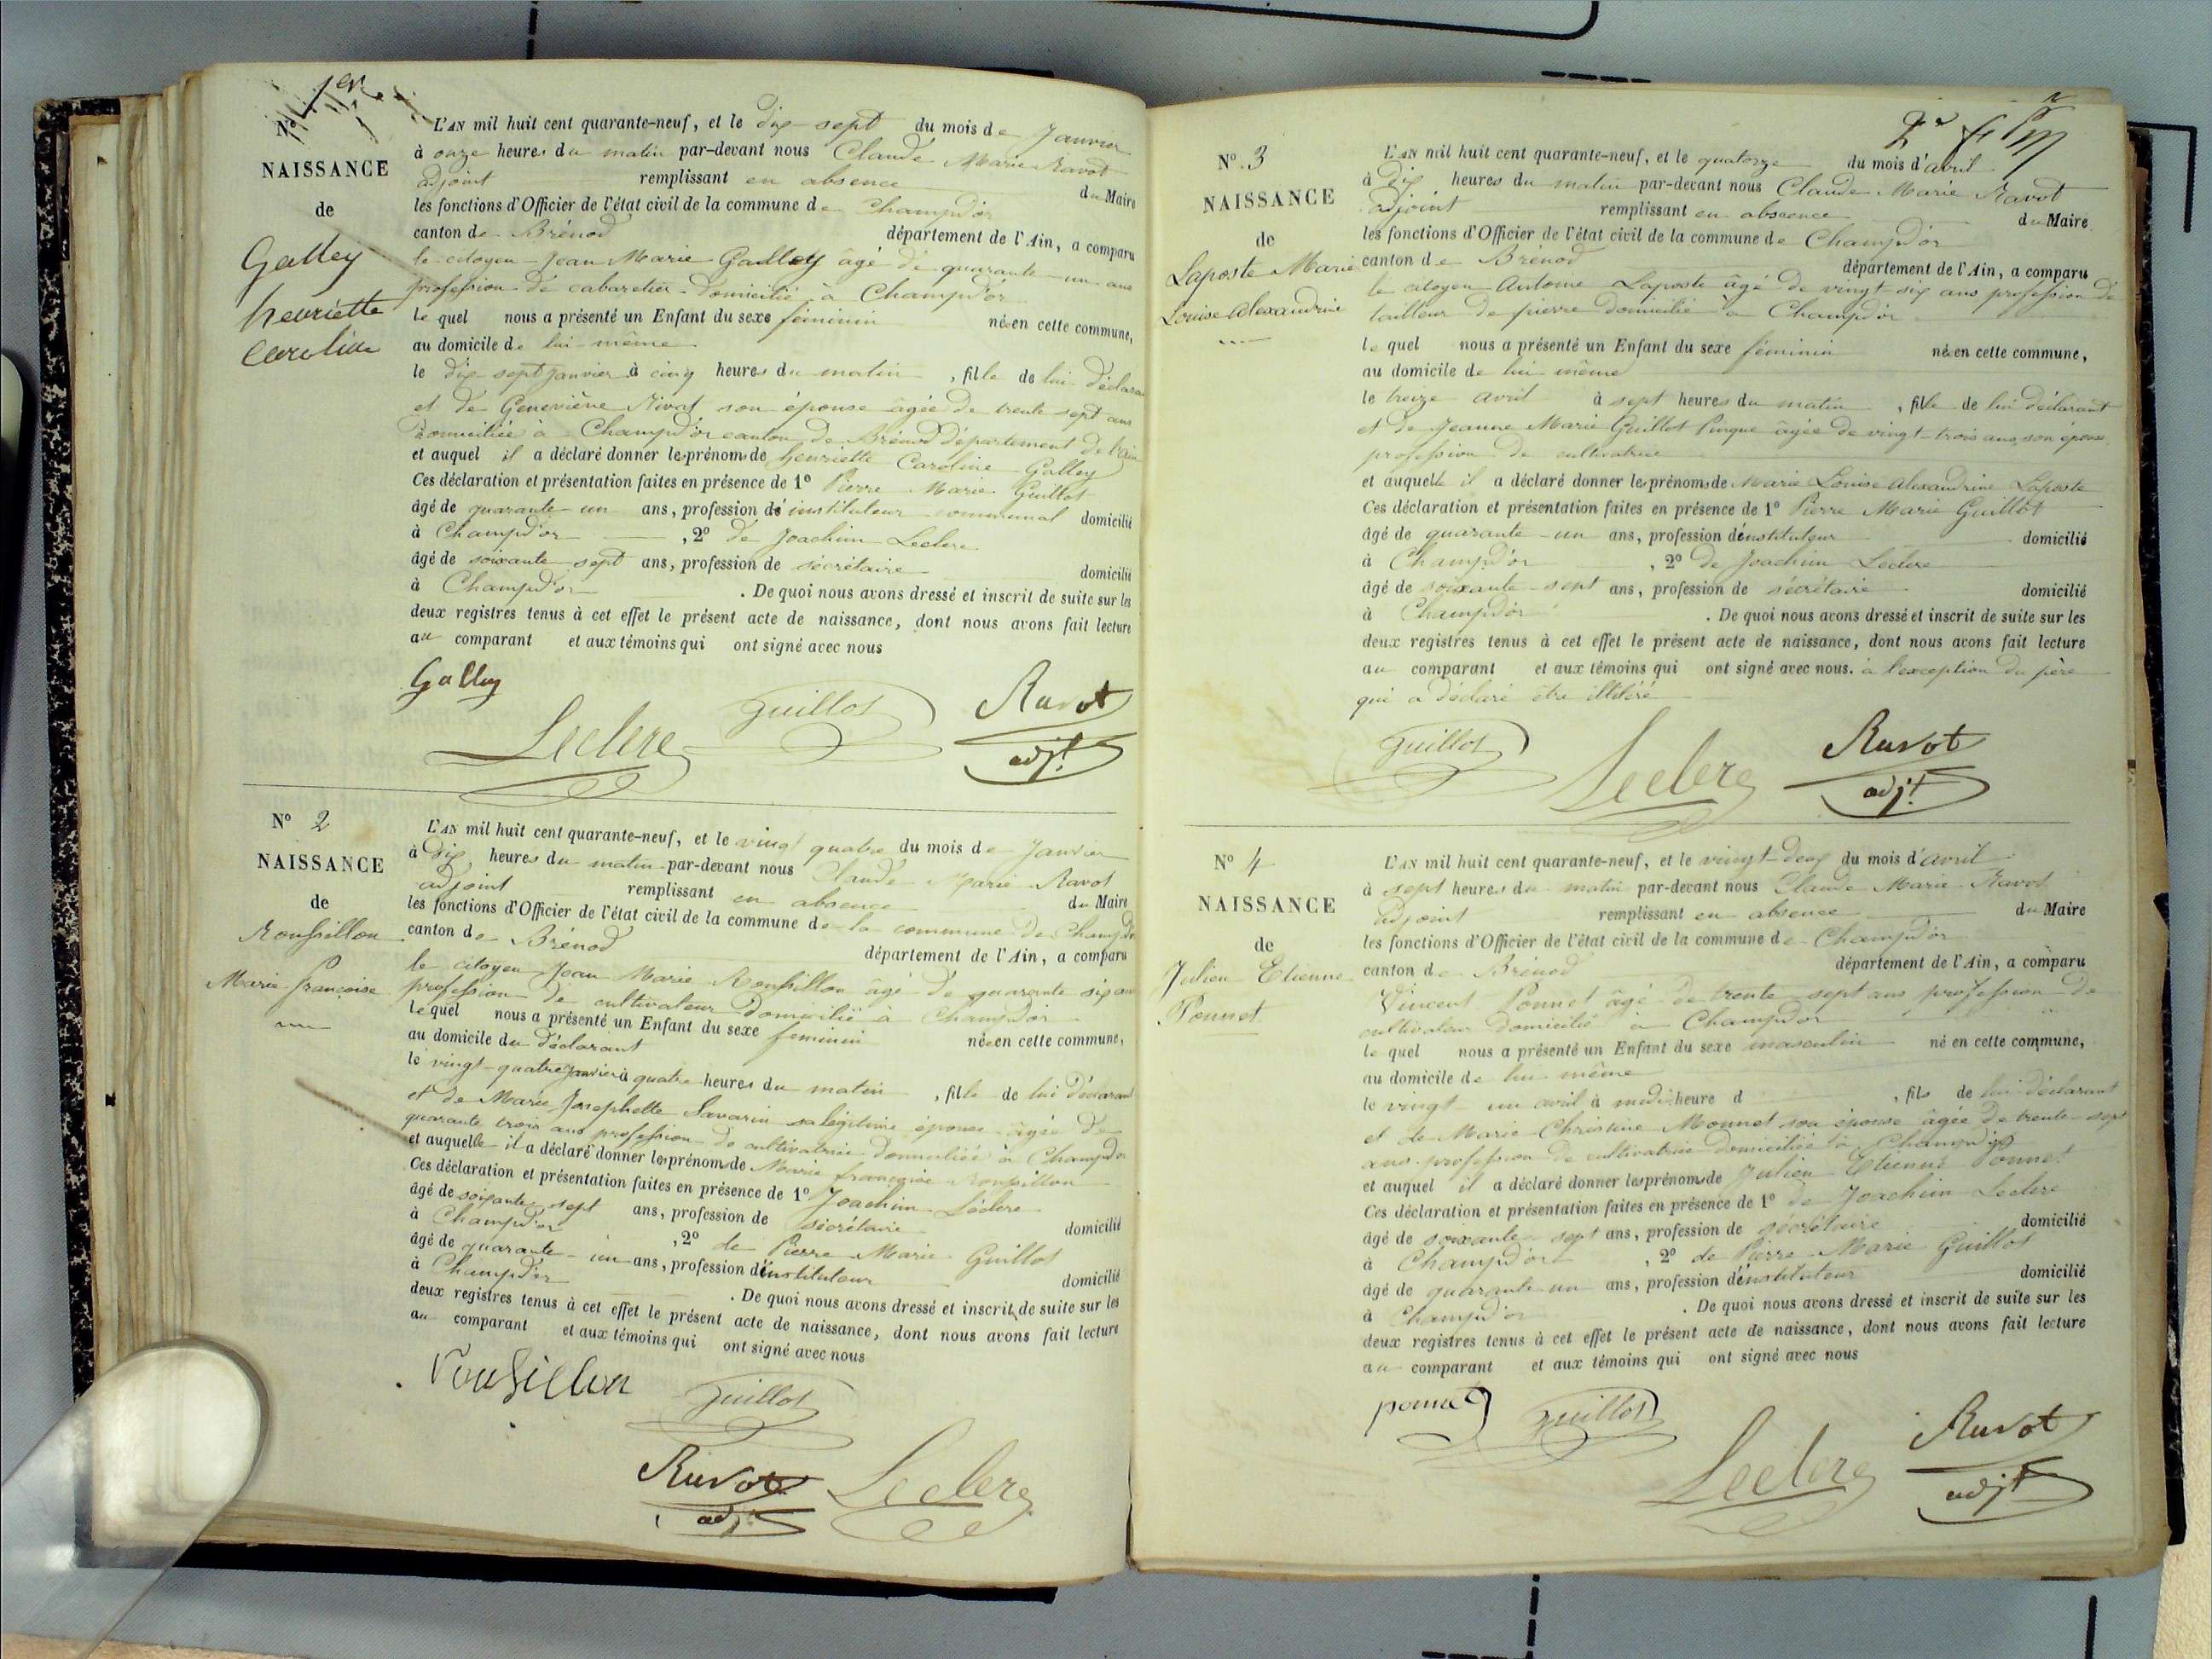 Nº 1er
NAISSANCE
de
Galley
henriette
Caroline
L'AN mil huit cent quarante-neuf, et le dix sept du mois de Janvier
à onze heures du matin par-devant nous Claude Marie Ravot
adjoint remplissant en absence du Maire
les fonctions d'Officier de l'état civil de la commune de Champd'or
canton de Brénod département de l'Ain, a comparu
le citoyen Jean Marie Galley âgé de quarante un ans
profession de cabaretier Domicilié à Champd'or
le quel nous a présenté un Enfant du sexe féminin née en cette commune,
au domicile de lui-même
le dix sept janvier à cinq heures du matin , fille de lui déclarant
et de Geneviève Rivat son épouse âgée de trente sept ans
domiciliée à Champd'or canton de Brénod département de l'ain
et auquel il a déclaré donner les prénoms de henriette Caroline Galley
Ces déclaration et présentation faites en présence de 1º Pierre Marie Guillot
âgé de quarante un ans, profession d'instituteur communal domicilié
à Champd'or , 2º de Joachim Leclerc
âgé de soixante sept ans, profession de sécrétaire domicilié
à Champd'or . De quoi nous avons dressé et inscrit de suite sur les
deux registres tenus à cet effet le présent acte de naissance, dont nous avons fait lecture
au comparant et aux témoins qui ont signé avec nous
Galley
Leclerc Guillot Ravot
adjt
Nº 2
NAISSANCE
de
Roussillon
Marie françoise
L'AN mil huit cent quarante-neuf, et le vingt quatre du mois de Janvier
à dix heures du matin par-devant nous Claude Marie Ravot
adjoint remplissant en absence du Maire
les fonctions d'Officier de l'état civil de la commune de la commune de Champd'or
canton de Brénod département de l'Ain, a comparu
le citoyen Jean Marie Roussillon âgé de quarante six ans
profession de cultivateur Domicilié à Champd'or
le quel nous a présenté un Enfant du sexe feminin née en cette commune,
au domicile du déclarant
le vingt-quatre janvier à quatre heures du matin , fille de lui déclarant
et de Marie Josephette Savarin sa légitime épouse âgée de
quarante trois ans profession de cultivatrice domiciliée à Champd'or
et auquelle il a déclaré donner les prénoms de Marie françoise Roussillon
Ces déclaration et présentation faites en présence de 1º Joachim Leclerc
âgé de soixante sept ans, profession de sécrétaire domicilié
à Champd'or , 2º de Pierre Marie Guillot
âgé de quarante-un ans, profession d'instituteur domicilié
à Champd'or . De quoi nous avons dressé et inscrit de suite sur les
deux registres tenus à cet effet le présent acte de naissance, dont nous avons fait lecture
au comparant et aux témoins qui ont signé avec nous
Roussillon Guillot
Ravot Leclerc
adjt
Nº 3
NAISSANCE
de
Laposte Marie
Louise Alexandrine
L'AN mil huit cent quarante-neuf, et le quatorze du mois d'avril
à Dix heures du matin par-devant nous Claude Marie Ravot
adjoint remplissant en absence du Maire
les fonctions d'Officier de l'état civil de la commune de Champd'or
canton de Brénod département de l'Ain, a comparu
le citoyen Antoine Laposte âgé de vingt six ans profession de
tailleur de pierre domicilié à Champd'or
le quel nous a présenté un Enfant du sexe féminin née en cette commune,
au domicile de lui même
le treize avril à sept heures du matin , fille de lui déclarant
et de Jeanne Marie Guillot Pingue âgée de vingt-trois ans, son épouse,
profession de cultivatrice
et auquelle il a déclaré donner les prénoms de Marie Louise Alexandrine Laposte
Ces déclaration et présentation faites en présence de 1º Pierre Marie Guillot
âgé de quarante-un ans, profession d'instituteur domicilié
à Champd'or , 2º de Joachim Leclerc
âgé de soixante-sept ans, profession de sécrétaire domicilié
à Champd'or . De quoi nous avons dressé et inscrit de suite sur les
deux registres tenus à cet effet le présent acte de naissance, dont nous avons fait lecture
au comparant et aux témoins qui ont signé avec nous. à l'exception du père
qui a déclaré être illitéré
Guillot Leclerc Ravot
adjt
Nº 4
NAISSANCE
de
Julien Etienne
Ponnet
L'AN mil huit cent quarante-neuf, et le vingt-deux du mois d'avril
à sept heures du matin par-devant nous Claude Marie Ravot
adjoint remplissant en absence du Maire
les fonctions d'Officier de l'état civil de la commune de Champd'or
canton de Brénod département de l'Ain, a comparu
Vincent Ponnet âgé de trente-sept ans profession de
cultivateur domicilié à Champd'or
le quel nous a présenté un Enfant du sexe masculin né en cette commune,
au domicile de lui même
le vingt-un avril à midi heure d , fils de lui déclarant
et de Marie-Christine Monnet son épouse âgée de trente-sept
ans profession de cultivatrice domiciliée à Champd'or
et auquel il a déclaré donner les prénoms de Julien Etienne Ponnet
Ces déclaration et présentation faites en présence de 1º de Joachim Leclerc
âgé de soixante-sept ans, profession de sécrétaire domicilié
à Champd'or , 2º de Pierre Marie Guillot
âgé de quarante-un ans, profession d'instituteur domicilié
à Champd'or . De quoi nous avons dressé et inscrit de suite sur les
deux registres tenus à cet effet le présent acte de naissance, dont nous avons fait lecture
au comparant et aux témoins qui ont signé avec nous
ponnet Guillot
Leclerc Ravot
adjt